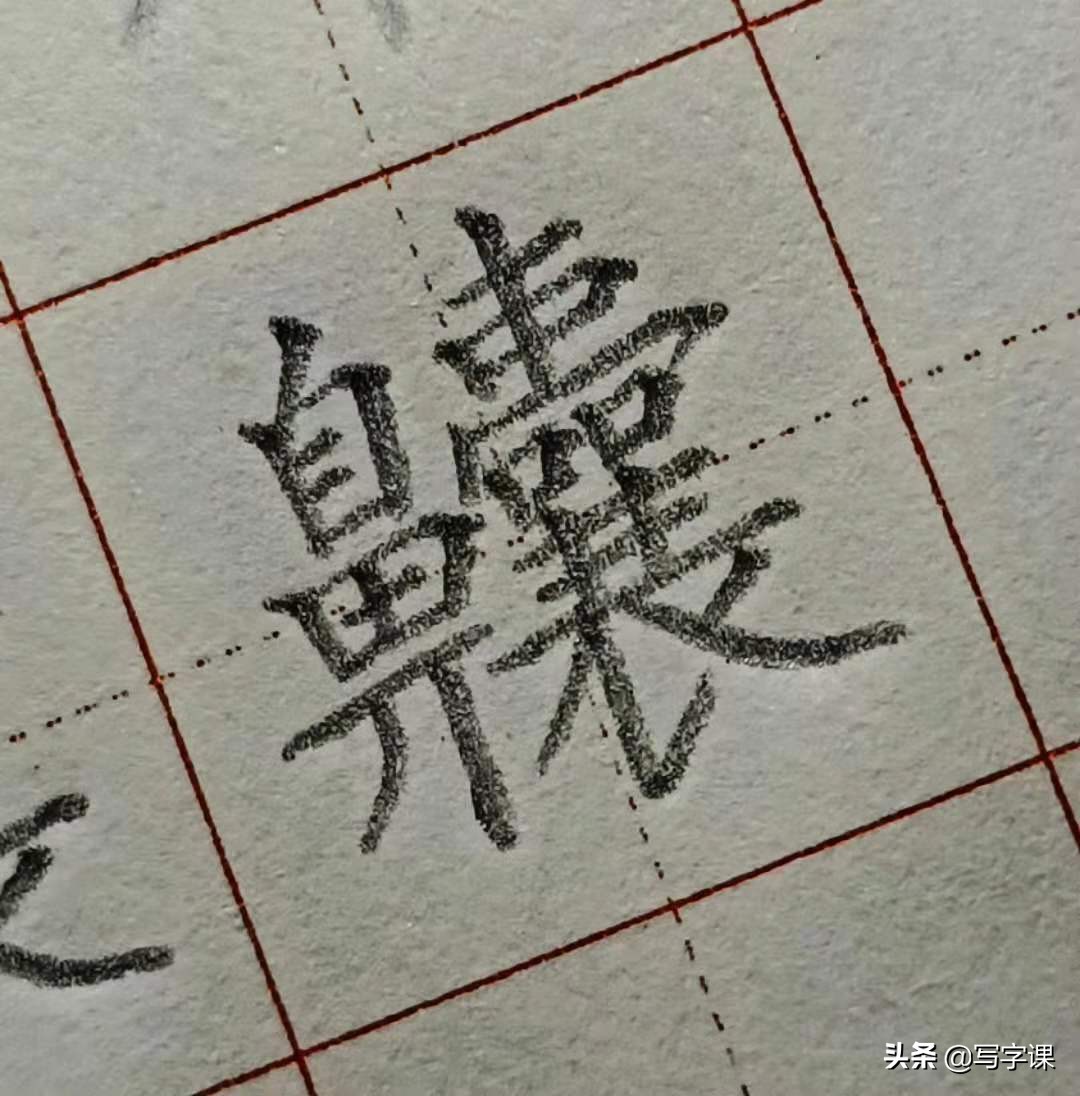 齉
头条 @写字课